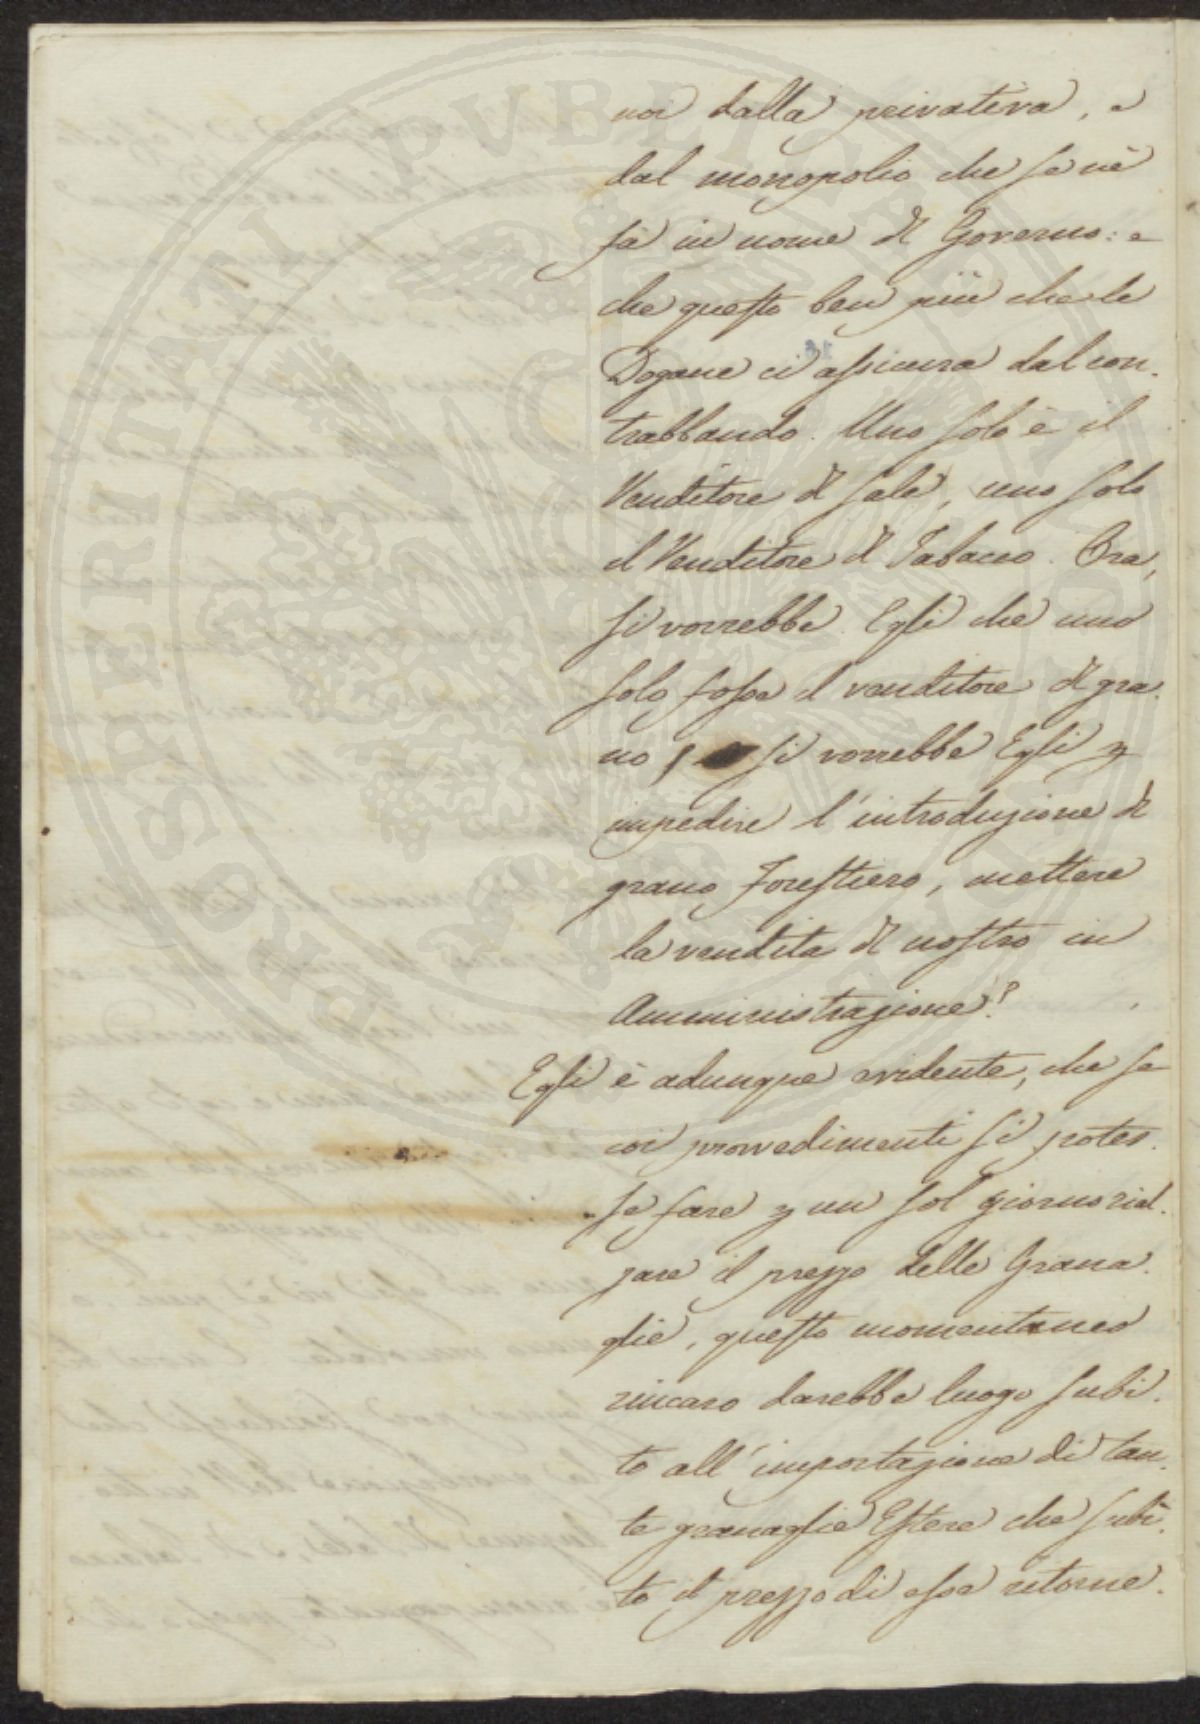 noi dalla privativa, e
dal monopolio che se nè
fà in nome di Governo: e
che questo ben più che le
Dogane ci assicura dal con-
trabbando. Uno solo è il
Venditore di sale, uno solo
il Venditore di Tabacco. Ora,
si vorrebbe Egli che uno
solo fosse il venditore di gra-
no, si vorrebbe Egli p
impedire l'introduzione di
grano Forestiero, mettere
la vendita di nostro in
Amministrazione?
Egli è adunque evidente, che se
coi provvedimenti si potes-
se fare p un sol giorno rial-
zare il prezzo delle Grana-
glie, questo momentaneo
rincaro darebbe luogo subi-
to all'importazione di tan-
te granaglie Estere che subi-
to il prezzo di esse ritorne-
PROSPERITATI PVBLICAE